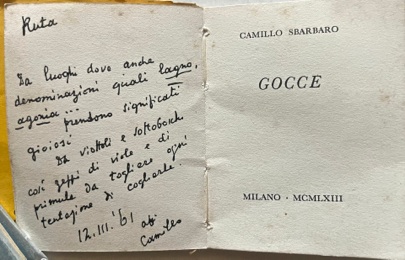 Ruta
Da luoghi dove anche
denominazioni quali lagno,
agonia... prendono significati
gioiosi
Da viottoli e sottoboschi
così zeppi di viole e di
primule da togliere ogni
tentazione di coglierle.
12.III.'61
Camillo
CAMILLO SBARBARO
GOCCE
MILANO · MCMLXIII